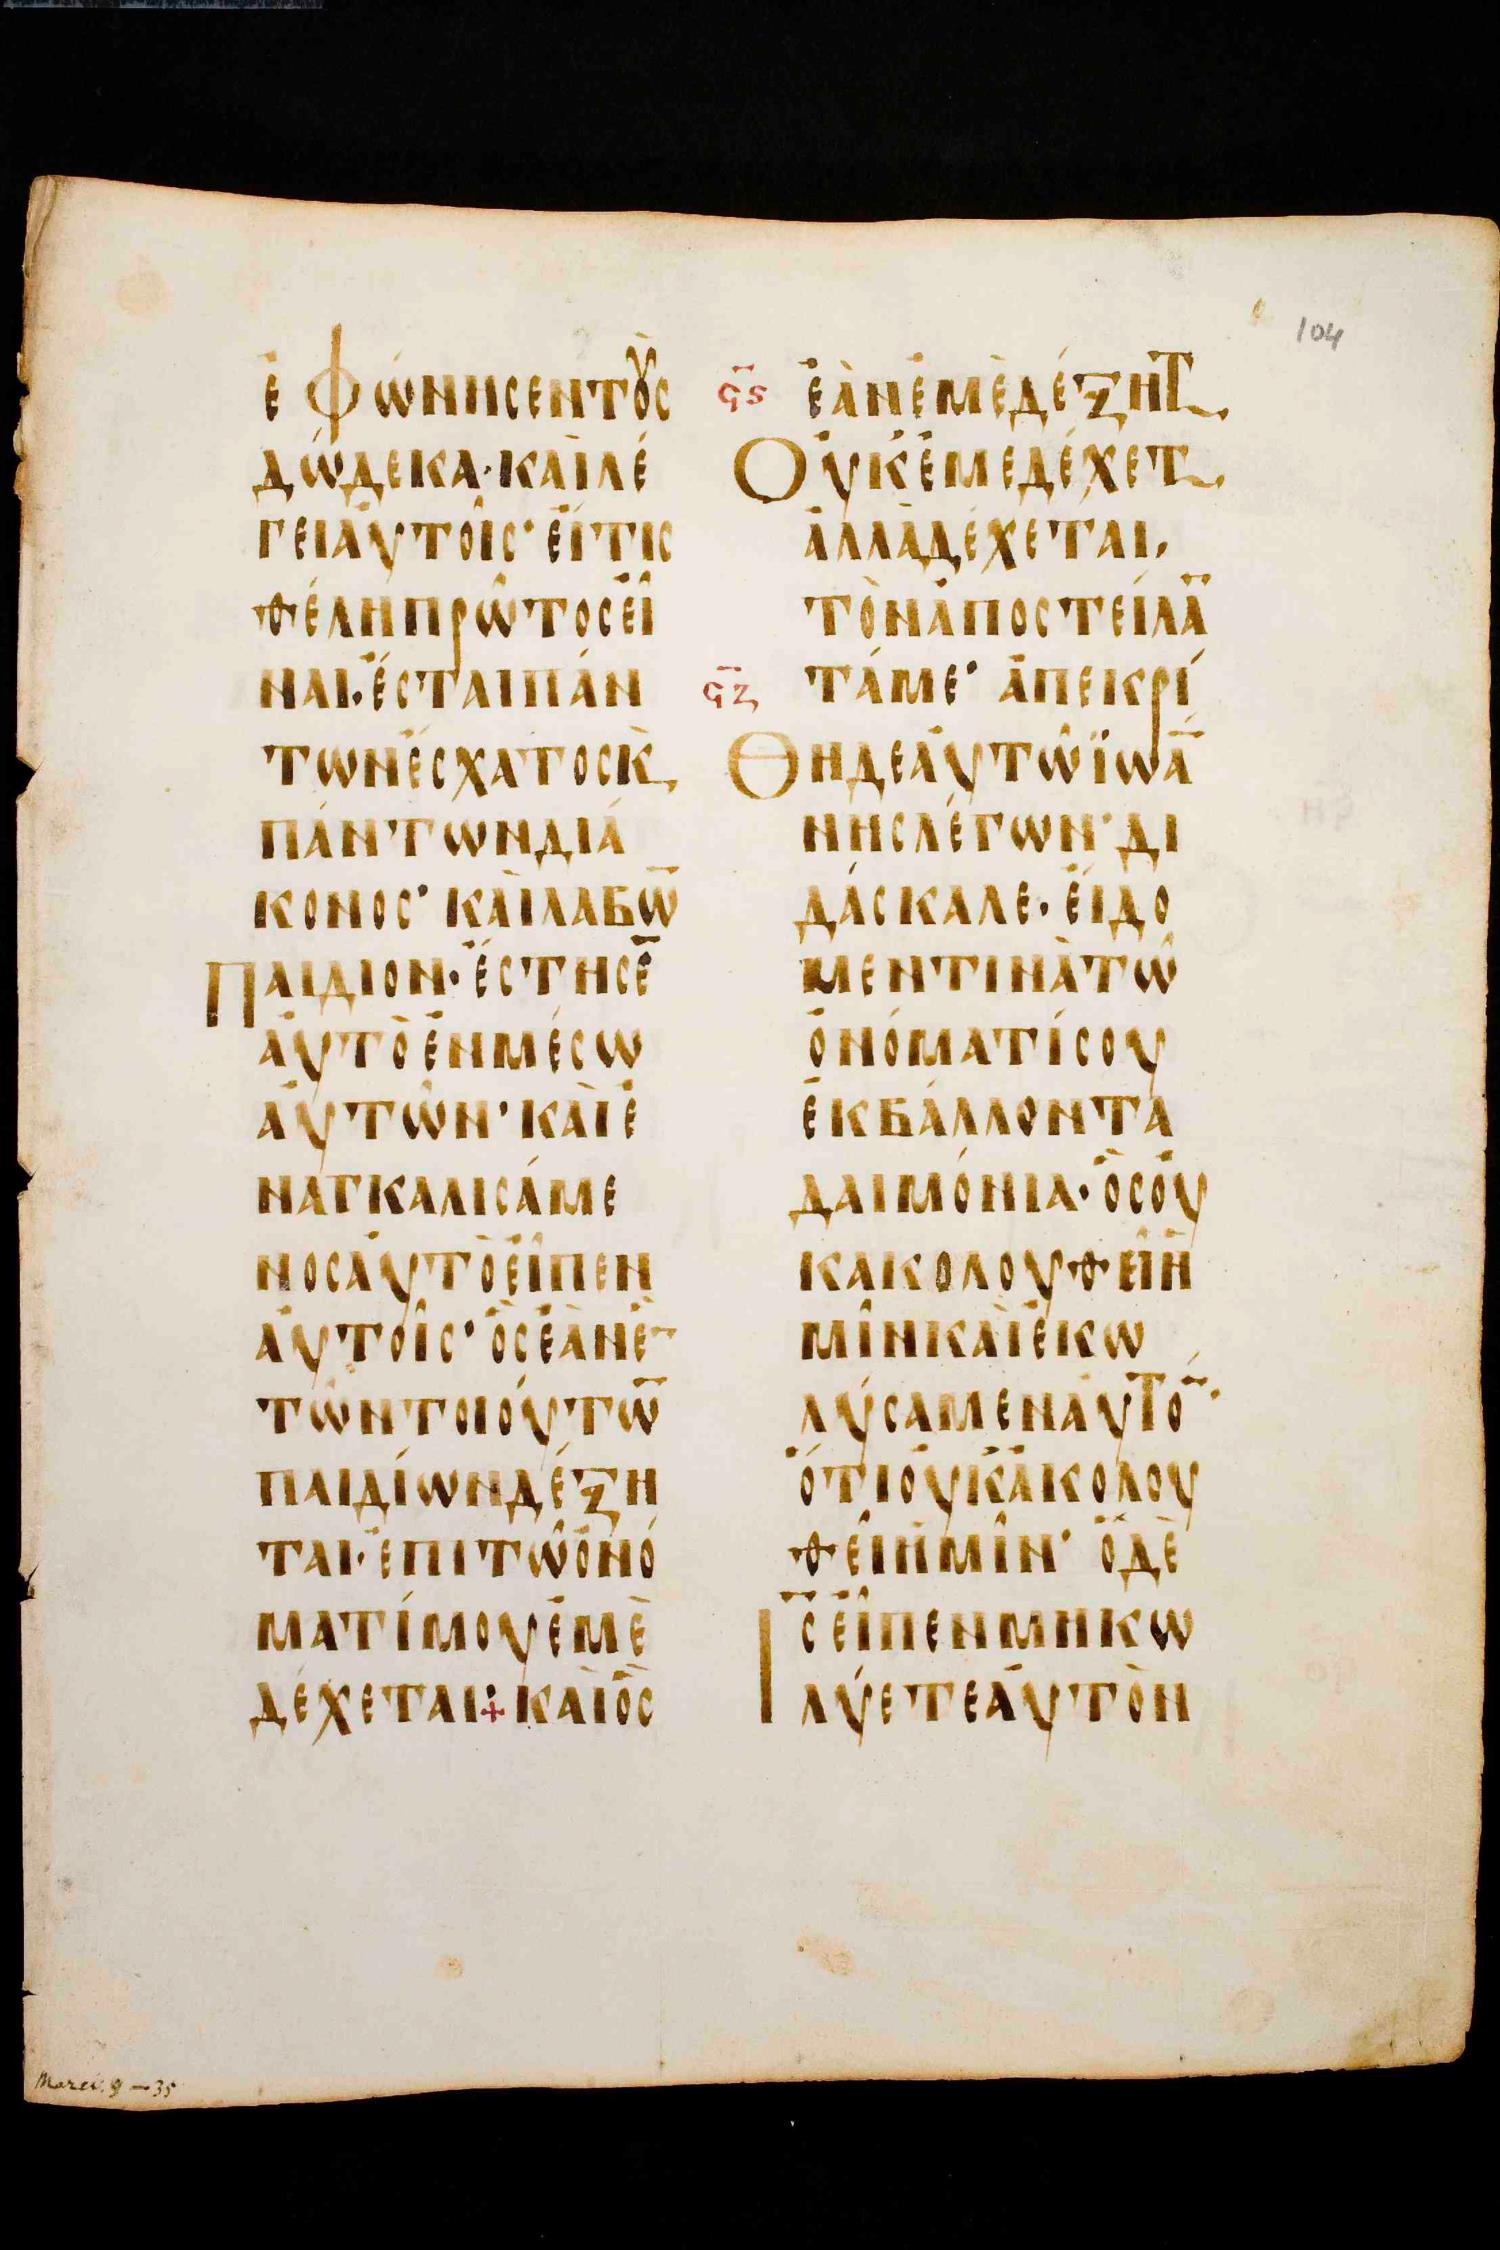 104
ἐφώνησεν τȣ̀ς
δώδεκα· καὶ λέ
γει ἀυτοῖς· ἔίτις
θέλη πρῶτος ἐῖ
ναι· ἔσται πάν
των ἔσχατος κ̀
πάντων διά
κονος· καὶ λαβω̄
παιδίον· ἔστησε̄
ἀυτὸ ἐν μέσω
ἀυτῶν· καὶ ἐ
ναγκαλισάμε
νος ἀυτὸ ἐῖπεν
ἀυτοῖς· ὃς ἐὰν ἐ
τῶν τοιούτω̄
παιδίων δέξη
ται· ἐπι τῶ ὀνό
ματί μου ἐμὲ
δέχεται·+ καὶ ὃς
ϛ̄ς
ἐὰν ἐμὲ δέξητ
Ουκ ἐμε δέχετ
ἀλλὰ δέχεται,
τὸν ἀποστείλᾱ
ϛ̄ζ
τά με· ἀπεκρί
Θη δε ἀυτῶ ϊωᾱ
νης λέγων· δι
δάσκαλε· ἔίδο
μεν τινὰ τῶ
ὀνόματί σου
ἐκβάλλοντα
δαιμόνια· ὃς ὀυ
κ ακολουθεῖ ἡ
μῖν καὶ ἐκω
λύσαμεν ἀυτο̄·
ὅτι ὀυκ ἀκολου
θεῖ ἡμῖν· ὁ δὲ
Ις̄ ἐῖπεν μη κω
λύετε ἀυτὸν
Marci. 9 – 35